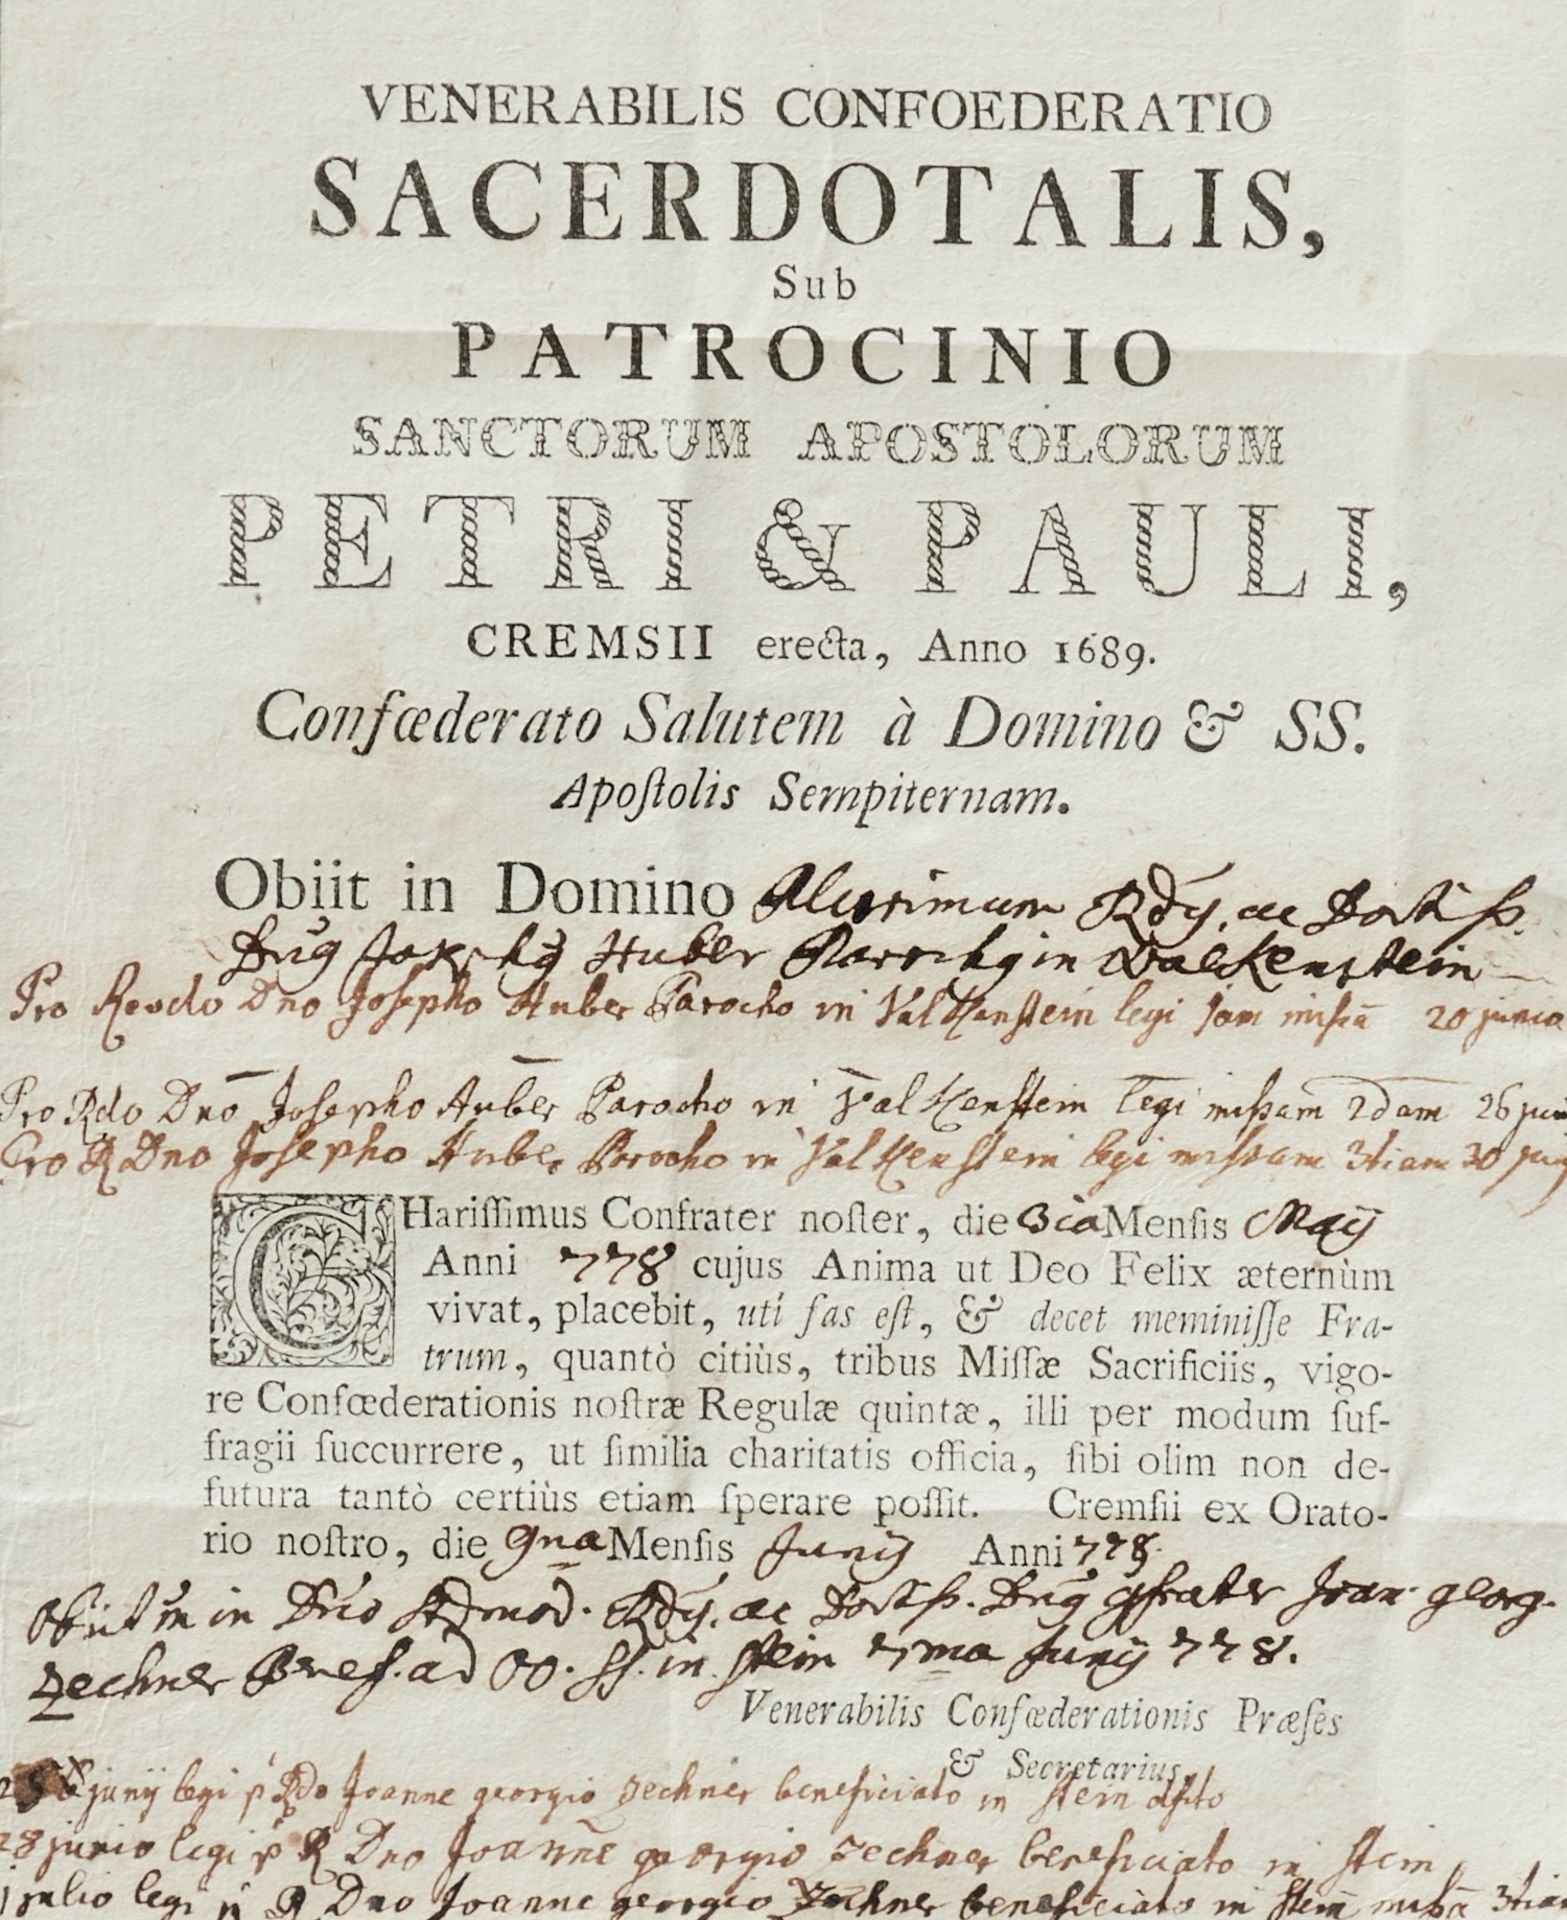 VENERABILIS CONFOEDERATIO
SACERDOTALIS,
Sub
PATROCINIO
SANCTORUM APOSTOLORUM
PETRI & PAULI,
CREMSII erecta, Anno 1689.
Confœderato Salutem à Domino & SS.
Apoſtolis Sempiternam.
Obiit in Domino Plurimum Rdg, ac Doctiſs.
Dng Josephg Huber Parochg in Valckenstein
Pro Rendo Dno Josepho Huber Parocho in Valkenstein legi missā 20 junio
Pro Rdo Dno Josepho Huber Parocho in Valkenstein legi missam 2dam 26 juni
Pro R Dno Josepho Huber Parocho in Valkenstein legi missam 3tiam 30 jun
CHariſſimus Confrater noſter, die 3ia Menſis Maij
Anni 778 cujus Anima ut Deo Felix æternùm
vivat, placebit, uti fas eſt, & decet meminiſſe Fra-
trum, quantò citiùs, tribus Miſſæ Sacrificiis, vigo-
re Confœderationis noſtræ Regulæ quintæ, illi per modum ſuf-
fragii ſuccurrere, ut ſimilia charitatis officia, ſibi olim non de-
futura tantò certiùs etiam ſperare poſſit. Cremſii ex Orato-
rio noſtro, die 9na Menſis Junij Anni 778.
Obiit in Dno Admod. Rdg, ac Doctſs. Dng Cfrater Joan. georg.
Zechner Benef. ad OO. SS. in Stein 7ma Junij 778.
Venerabilis Confœderationis Præſes
& Secretarius.
junij legi p Rdo Joanne georgio Zechner beneficiato in Stein
28 junio legi p R Dno Joanne georgio Zechner beneficiato in Stein
1 julio legi p R Dno Joanne georgio Zechner beneficiato in Stein missā 3tia